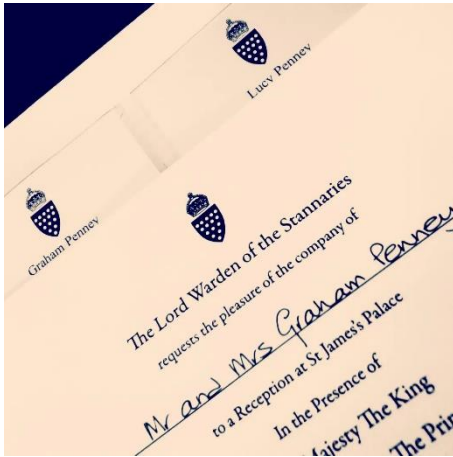 Lucy Penney
Graham Penney
The Lord Warden of the Stannaries
requests the pleasure of the company of
Mr and Mrs Graham Penney
to a Reception at St James's Palace
In the Presence of
Majesty The King
The